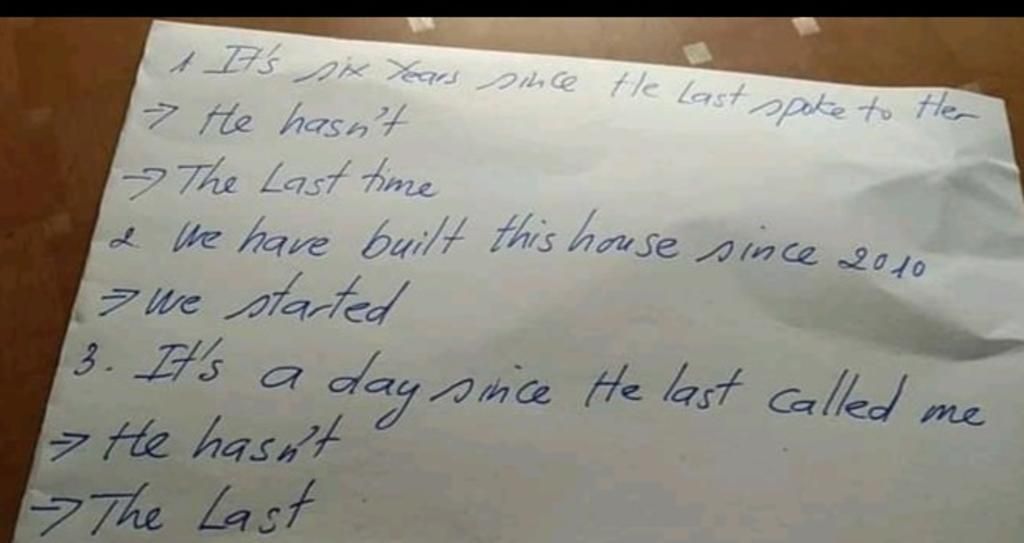 1 It's six Years since He Last spoke to Her
→ He hasn't
→ The Last time
2 We have built this house since 2010
→ we started
3. It's a day since He last called me
→ He hasn't
→ The Last